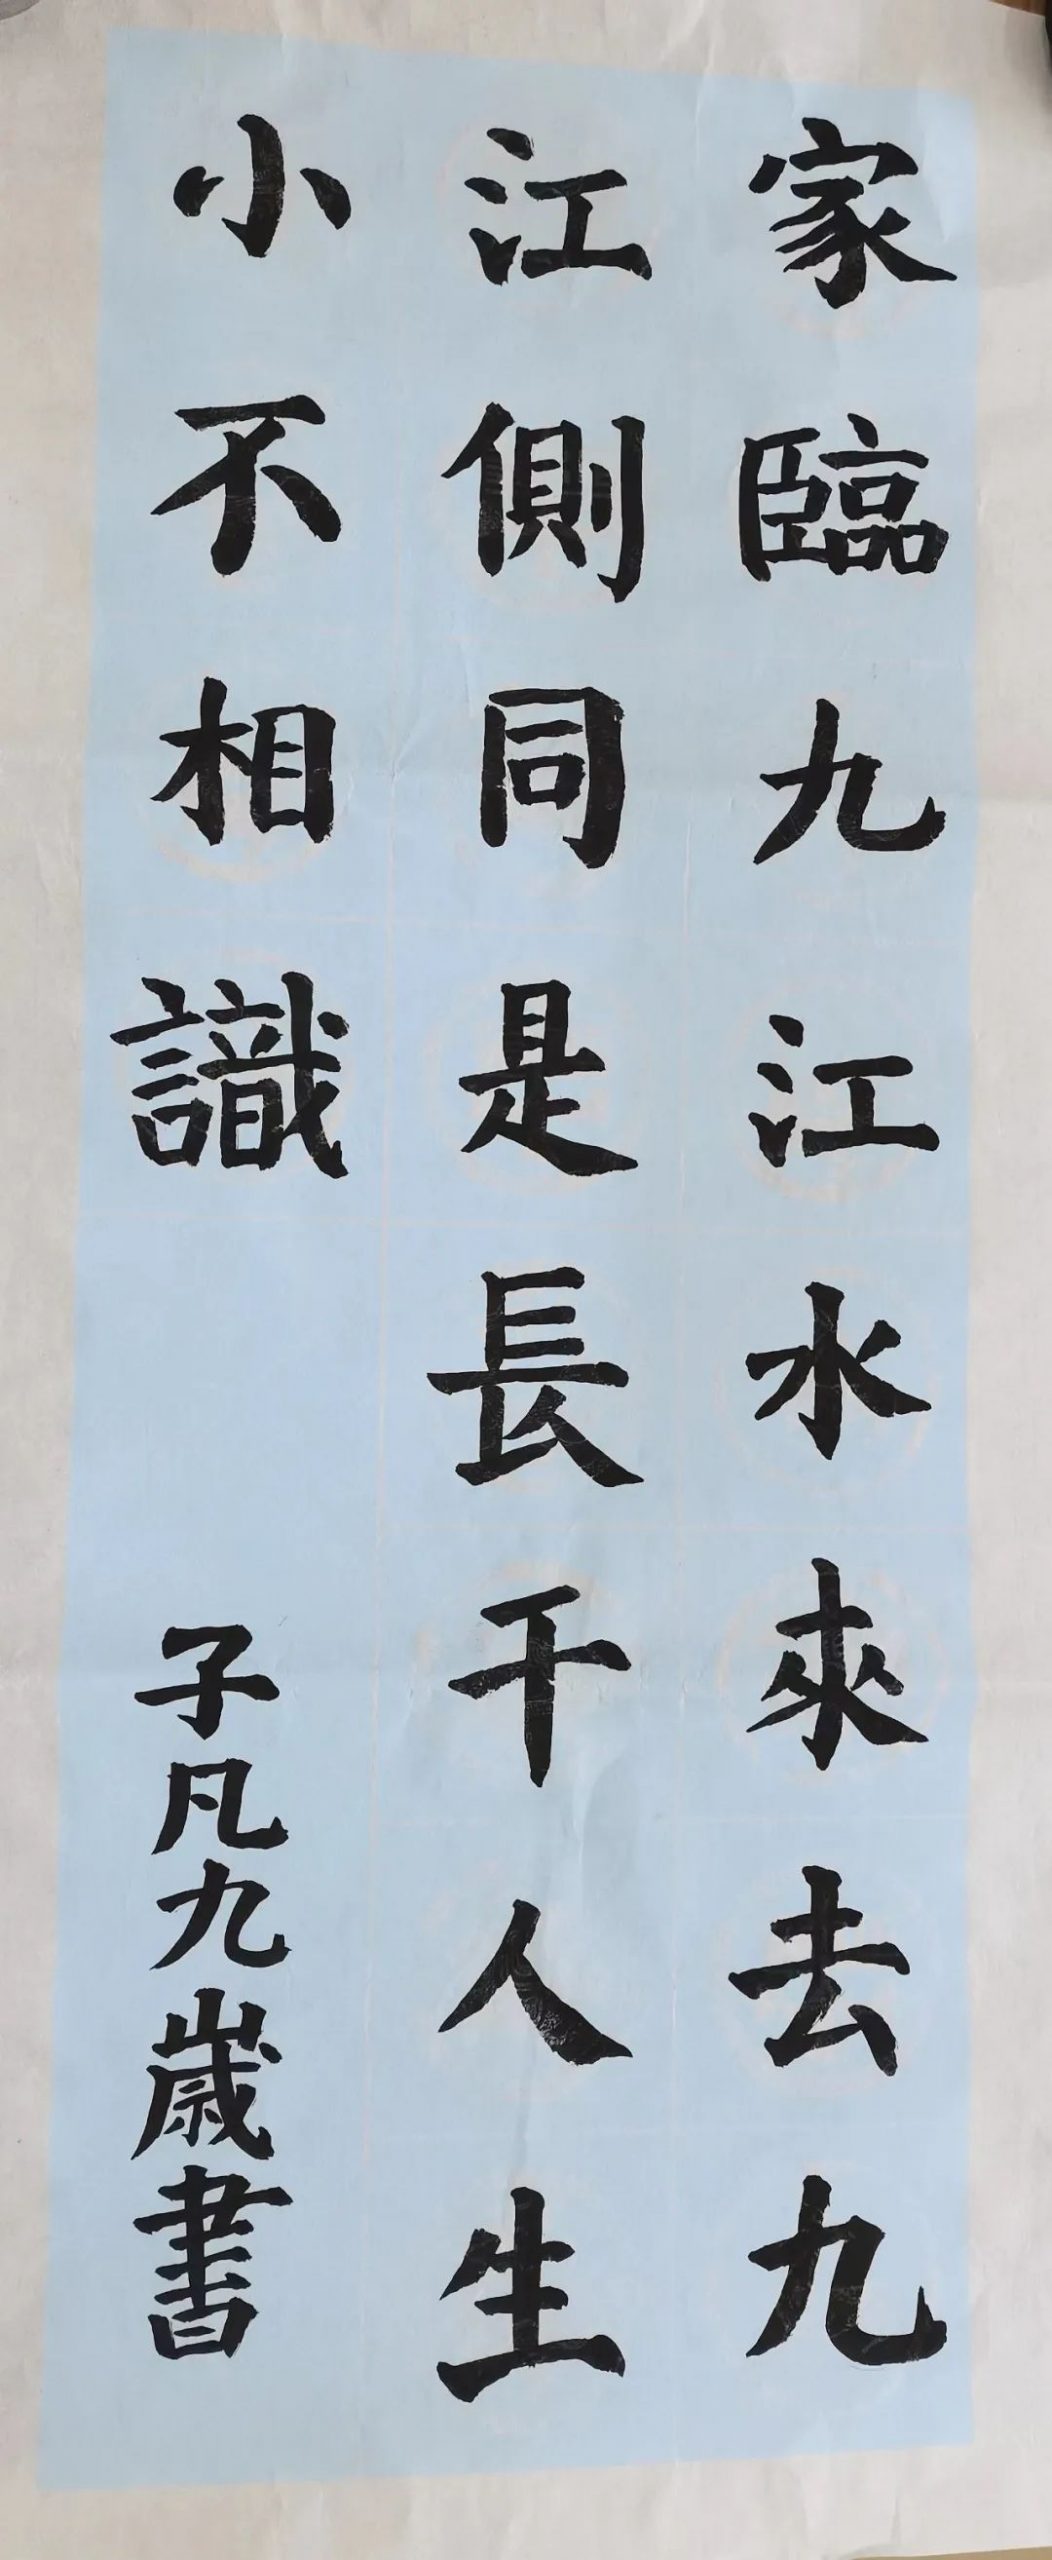 家臨九江水來去九
江側同是長干人生
小不相識
子凡九歲書